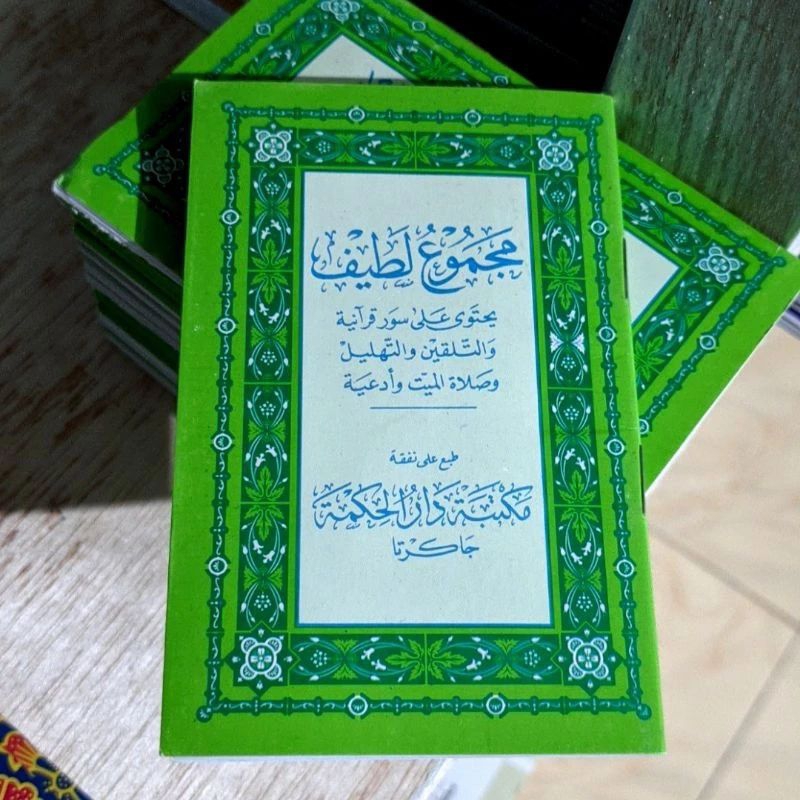 مَجْمُوْعُ لَطِيْف
يحتوى على سور قرآنية
والتلقين والتهليل
وصلاة الميت وأدعية
طبع على نفقة
مَكْتَبَة دَارُ الحِكْمَة
جاكرتا